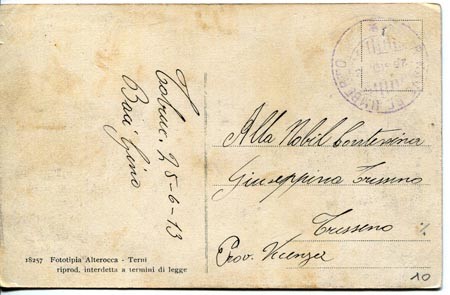 Tobruc. 25-6-13
Baci Gino
Alla Nobil Contessina
Giuseppina Trissino
Trissino
Prov. Vicenza
%
10
18257 Fototipia Alterocca - Terni
riprod. interdetta a termini di legge